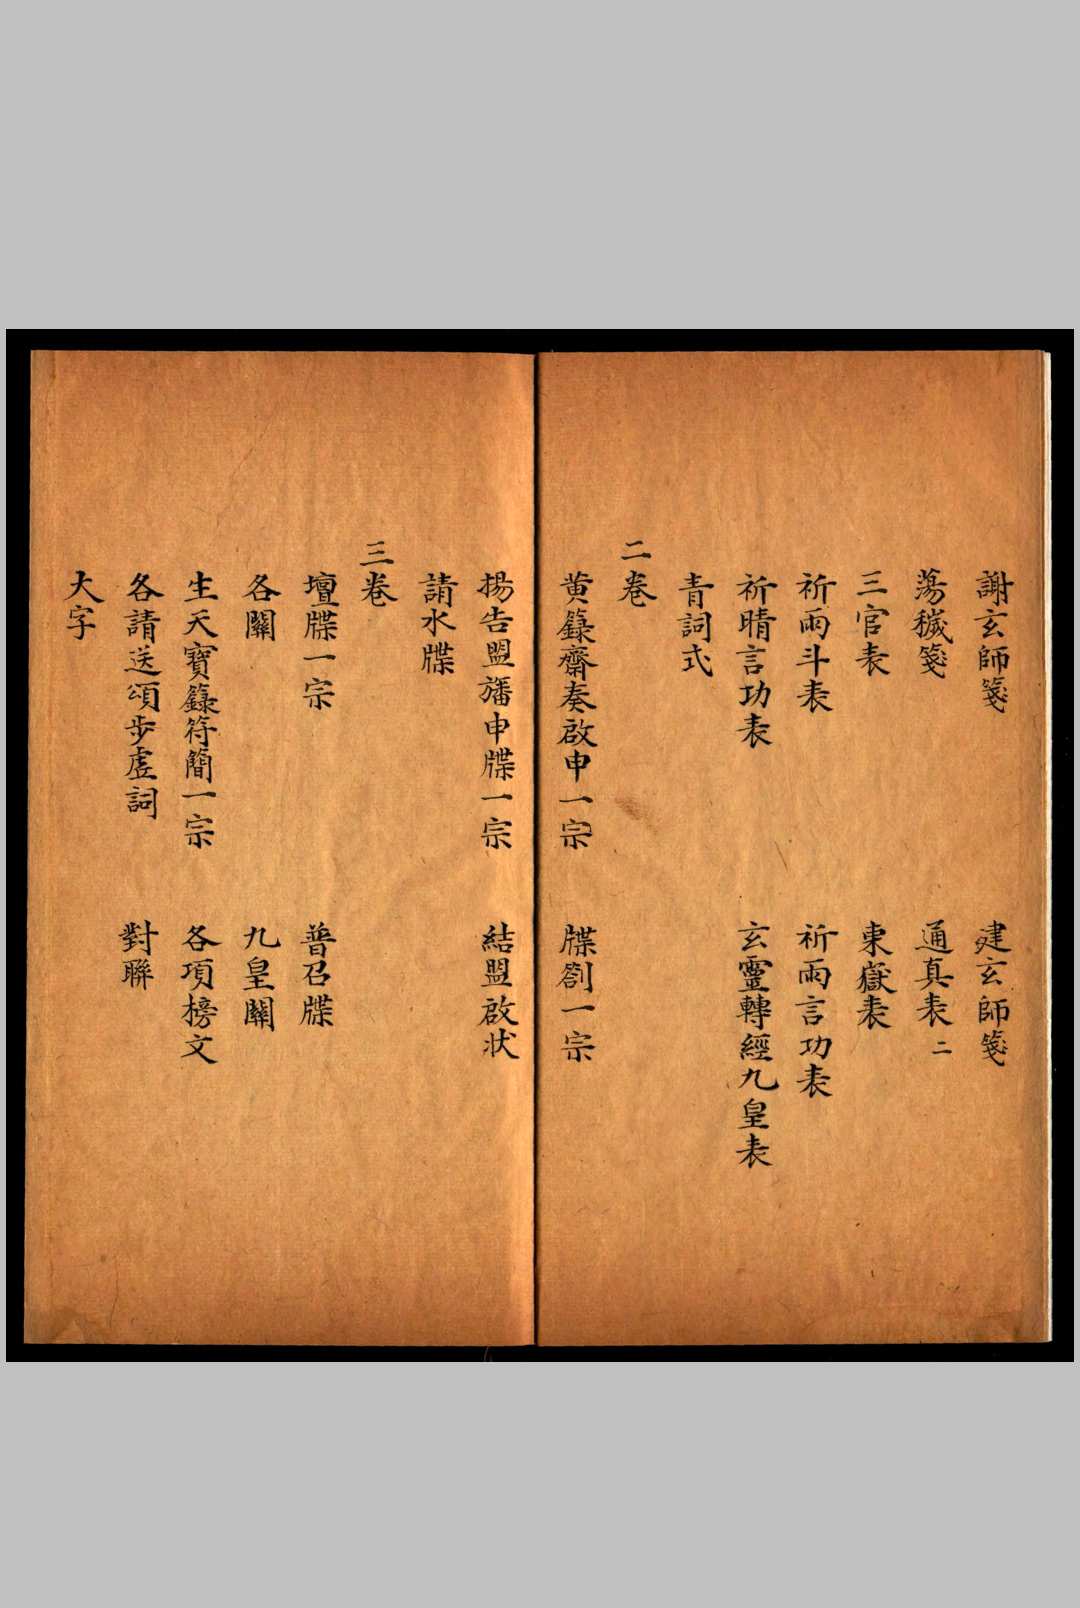 謝玄師箋　建玄師箋
蕩穢箋　通真表二
三官表　東嶽表
祈雨斗表　祈雨言功表
祈晴言功表　玄靈轉經九皇表
青詞式
二卷
黄籙齋奏啟申一宗　牒劄一宗
揚告盟旛申牒一宗　結盟啟状
請水牒
三卷
壇牒一宗　普召牒
各關　九皇關
生天寶籙符簡一宗　各項榜文
各請送頌步虛詞　對聮
大字